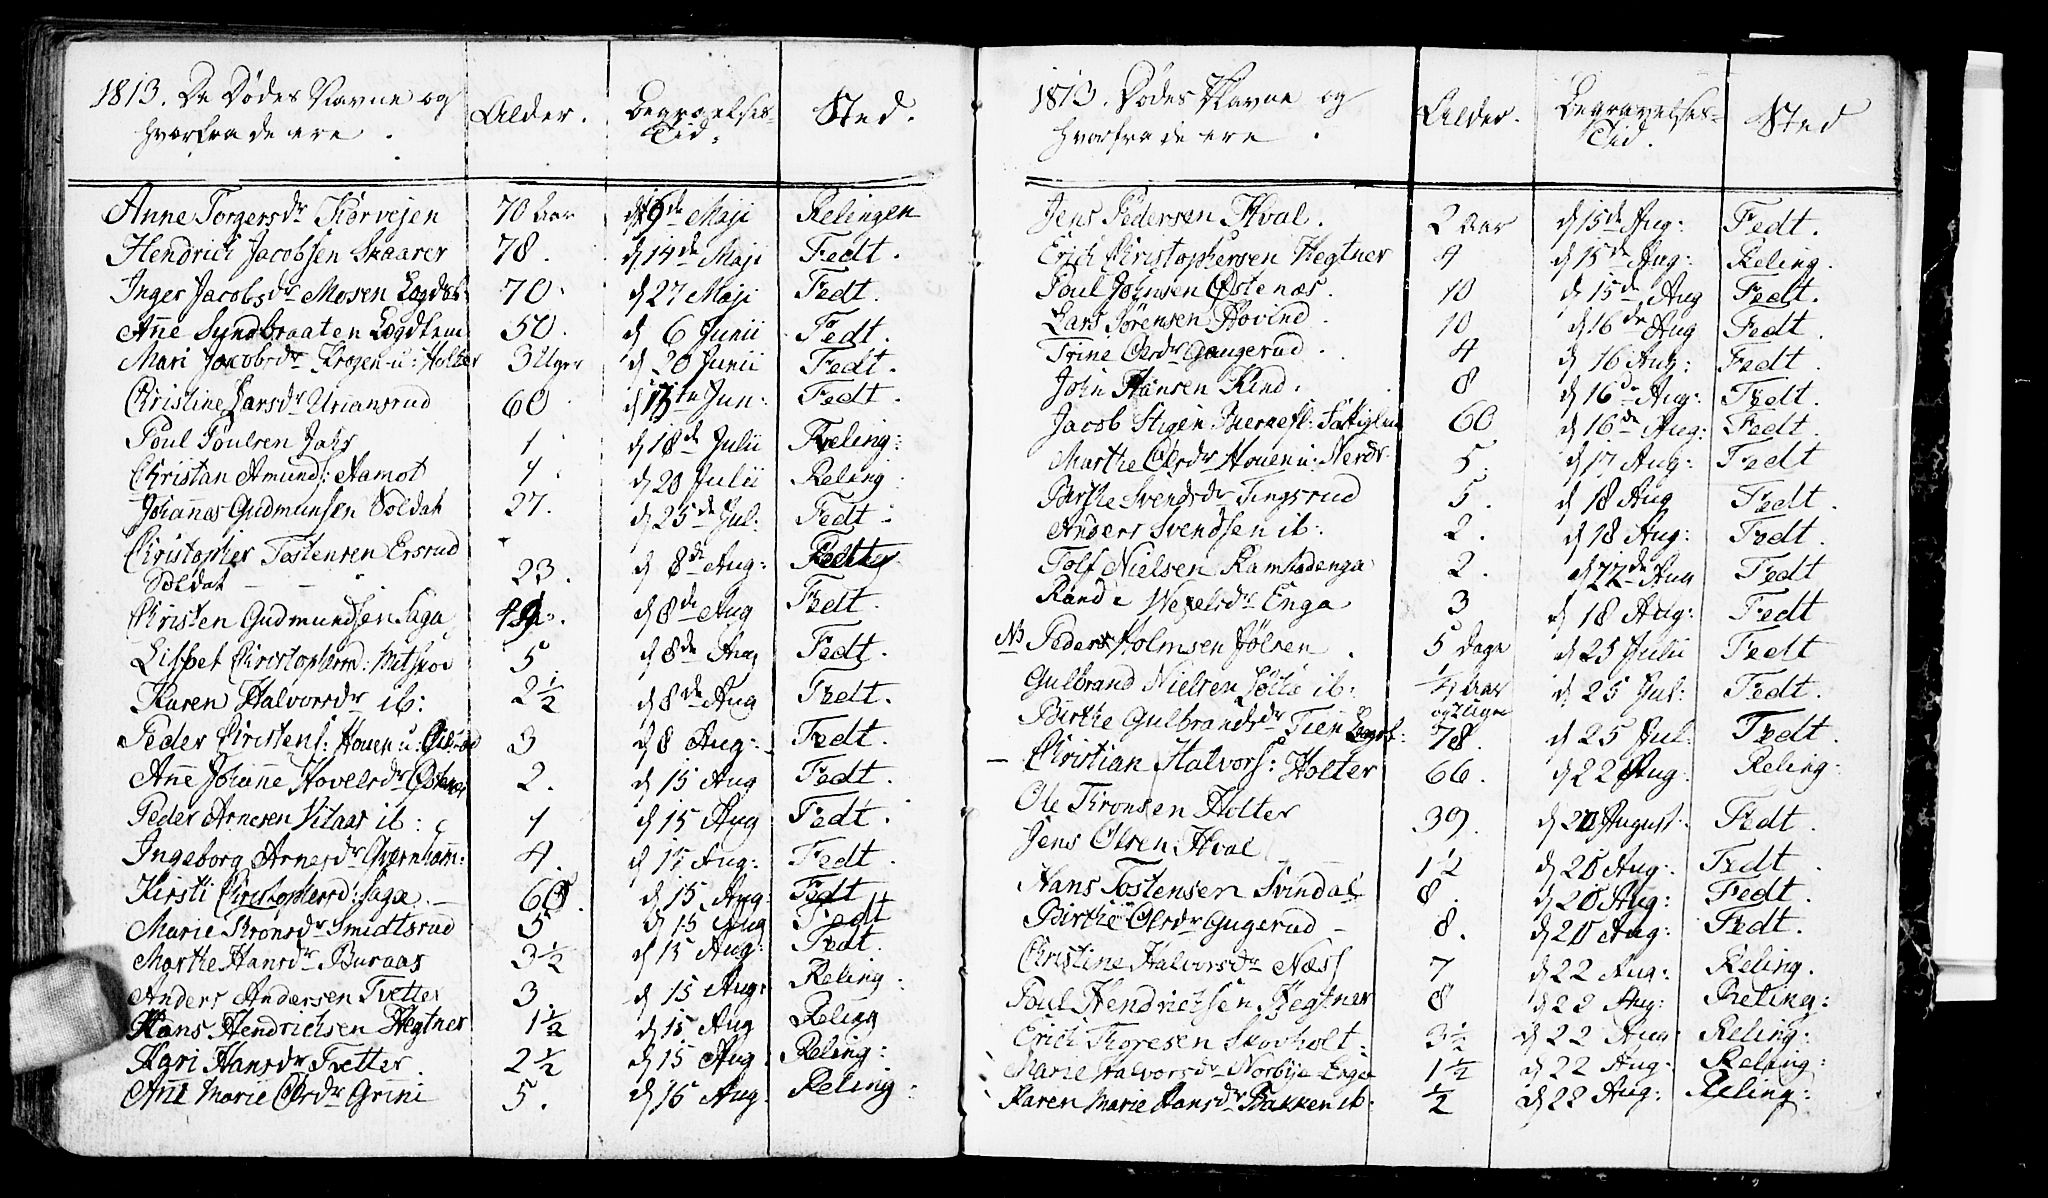 1813. De Dødes Navne og
hvorfra de ere.
Alder.
Begravelses-
Tid.
Sted.
Anne Torgersdr Kørvejen 70 Aar d 9de Maji Relingen
Hendrich Jacobsen Skaarer 78. d 14de Maji Fedt.
Inger Jacobsdr Mosen Lægdsl: 70. d 27 Maji Fedt.
Añe Lyndbraaten Lægdlem 50. d 6 Junii Fedt.
Mari Jacobsdr Krogen u: Holter 3 Uger d 20 Junii Fedt.
Christine Larsdr Uriansrud 60 d 13te Jun: Fedt.
Poul Poulsen Jahr 1 d 18de Julii Reling:
Christan Amunds: Aamot 4 d 20 Julii Reling:
Johannes Gudmunsen Soldat 27. d 25de Jul: Fedt.
Christopher Tostensen Ersrud
Soldat 23. d 8de Aug: Fedt
Christen Gudmundsen Saga d 8de Aug Fedt.
Lisbet Christophersd: Metskov 5. d 8de Aug Fedt.
Karen Halvorsdr ib: 2½ d 8de Aug Fedt.
Peder Christens: Houen u: 3 d 8 Aug: Fedt.
Añe Johañe Hovelsdr Østenæs 2. d 15 Aug Fedt.
Peder Arnesen Vilaas ib: 4 d 15 Aug Fedt.
Ingeborg Arnesdr Qvernham̃: 4. d 15 Aug: Fedt.
Kirsti Christophersd: Saga 60. d 15 Aug: Fedt
Marie Kronsdr Smidtsrud 5 d 15 Aug Fedt
Marthe Hansdr Buraas 3½ d 15 Aug: Fedt.
Anders Andersen Tvetter 3. d 15 Aug: Reling:
Hans Hendrichsen Hegtner 1½ d 15 Aug Reling
Kari Hansdr Tvetter. 2½ d 15 Aug Reling:
Añe Marie Olsdr Grini 5. d 16 Aug. Reling:
1813. Dødes Navne og
hvorfra de ere.
Alder.
Begravelses-
Tid.
Sted
Jens Pedersen Hval. 2 Aar d 15de Aug: Fedt.
Erich Christophersen Hegtner 4 d 15de Aug: Reling.
Poul Johnsen Østenæs. 10 d 15de Aug Fedt.
Lars Sørensen Hovind. 10 d 16de Aug Fedt.
Trine Olsdr Gaugerud. 4 d 16 Aug: Fedt.
John Hansen Rind. 8 d 16de Aug: Fedt.
Jacob Stigen Bierneh: Fattiglem 60 d 16de Aug: Fedt.
Marthe Olsdr Houen u: Nerdr 5. d 17 Aug: Fedt
Birthe Svendsdr Tingsrud 5. d 18 Aug Fedt.
Anders Svendsen ib: 2. d 18 Aug: Fedt.
Tolf Nielsen Ramstadenga 2. d 22de Aug Fedt
Randi Wexelsdr Enga 3 d 18 Aug: Fedt
NB Peder Holmsen Jølsen. 5 Dage d 25 Julii Fedt
Gulbrand Nielsen ib: ½ Aar
og 2 Uger d: 25 Jul: Fedt.
Birthe Gulbrandsdr Tien Lægdsl: 78. d 25 Jul: Fedt.
Christian Halvors: Holter 66. d 22 Aug. Reling:
Ole Kronsen Holter 39. d 20 August. Fedt.
Jens Olsen Hval 1½ d 20 Aug: Fedt.
Hans Tostensen Svindal 8. d 20 Aug: Fedt.
Birthe Olsdr Gugerud 8. d 20 Aug: Fedt.
Christine Halvorsdr Næss 7 d 22 Aug: Reling.
Poul Hendrichsen Hegtner 8 d 22 Aug: Reling:
Erich Thoresen Skovholt: 3½ d 22 Aug Reling:
Marie Halvorsdr Norbye Enga 1½ d 22 Aug: Reling:
Karen Marie Hansdr Bakken ib: ½ d 22 Aug: Reling: